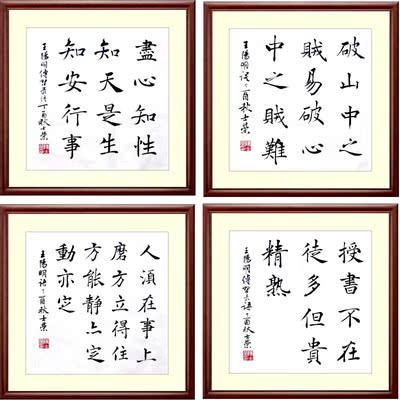 盡心知性
知天是生
知安行事
王陽明傳習录语丁酉秋士荣
破山中之
賊易破心
中之賊難
王陽明语丁酉秋士荣
人須在事上
磨方立得住
方能静亦定
動亦定
王陽明语丁酉秋士荣
授書不在
徒多但貴
精熟
王陽明傳習录语丁酉秋士荣